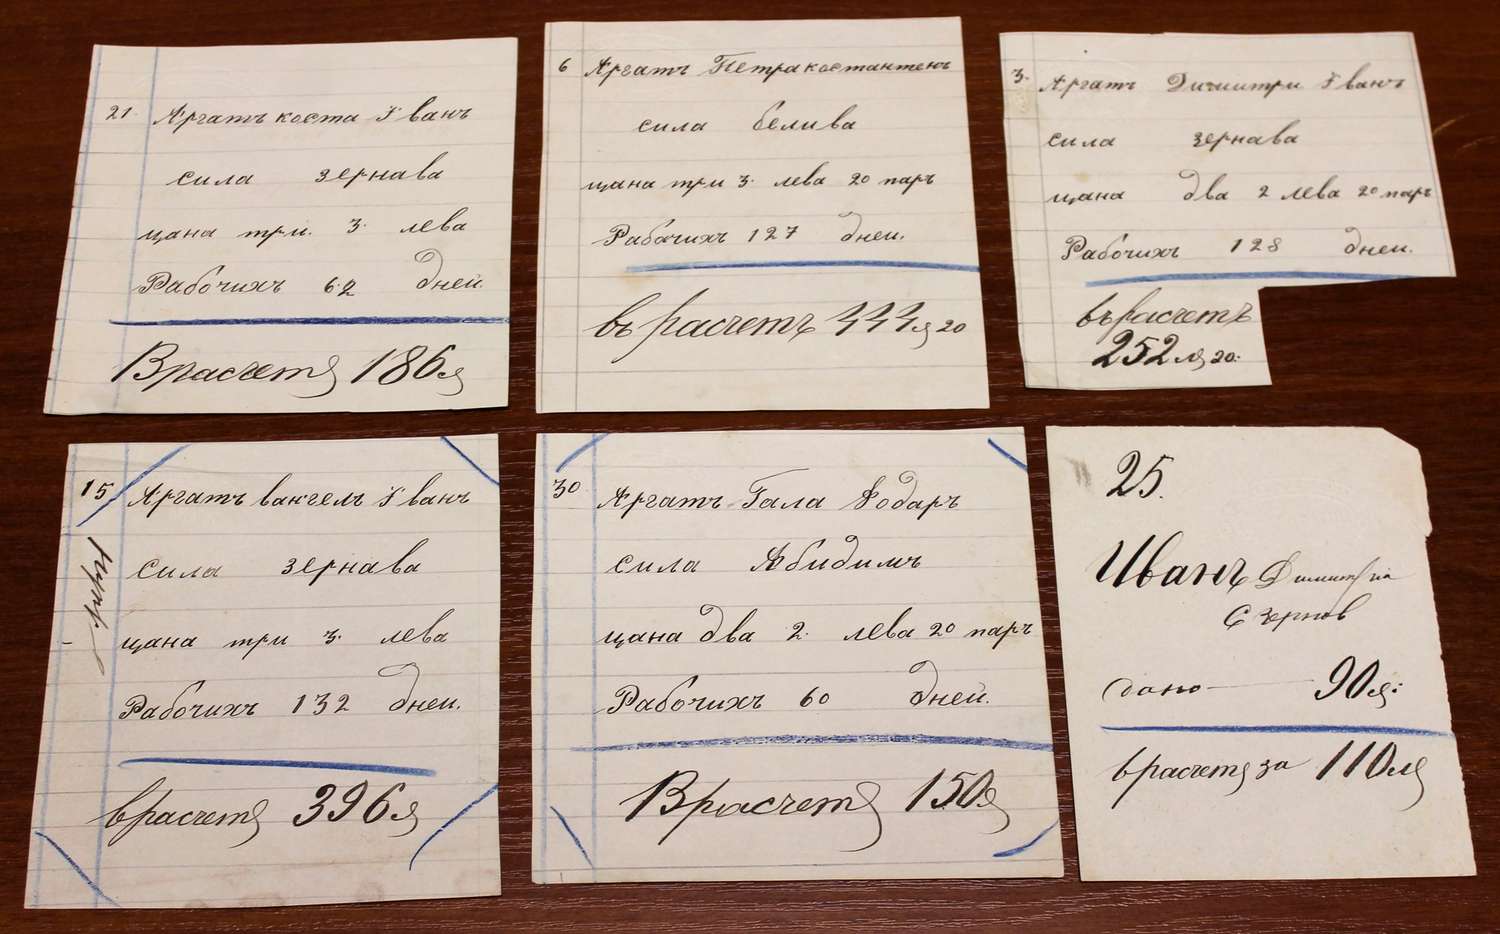 21. Аргатъ коста Іванъ
сила зернава
цана три. 3. лева
Рабочихъ 62 дней
Врасчетъ 186 л
6 Аргатъ Петракостантенъ
сила белива
цана три 3. лева 20 паръ
Рабочихъ 127 дней.
въ расчетъ 444 л 20
3. Аргатъ Димитри Іванъ
сила зернава
цана два 2 лева 20 паръ
Рабочихъ 128 дней.
въ расчетъ
252 ля 20.
15 Аргатъ вангелъ Іванъ
сила зернава
цана три 3. лева
Рабочихъ 132 дней.
врасчетъ 396 л
30 Аргатъ Гала Ѳодаръ
сила Абидимъ
цана два 2. лева 20 паръ
Рабочихъ 60 дней.
Врасчетъ 150 л
25.
Иванъ
С Зернов
дано 90 л:
врасчетъ за 110 ля